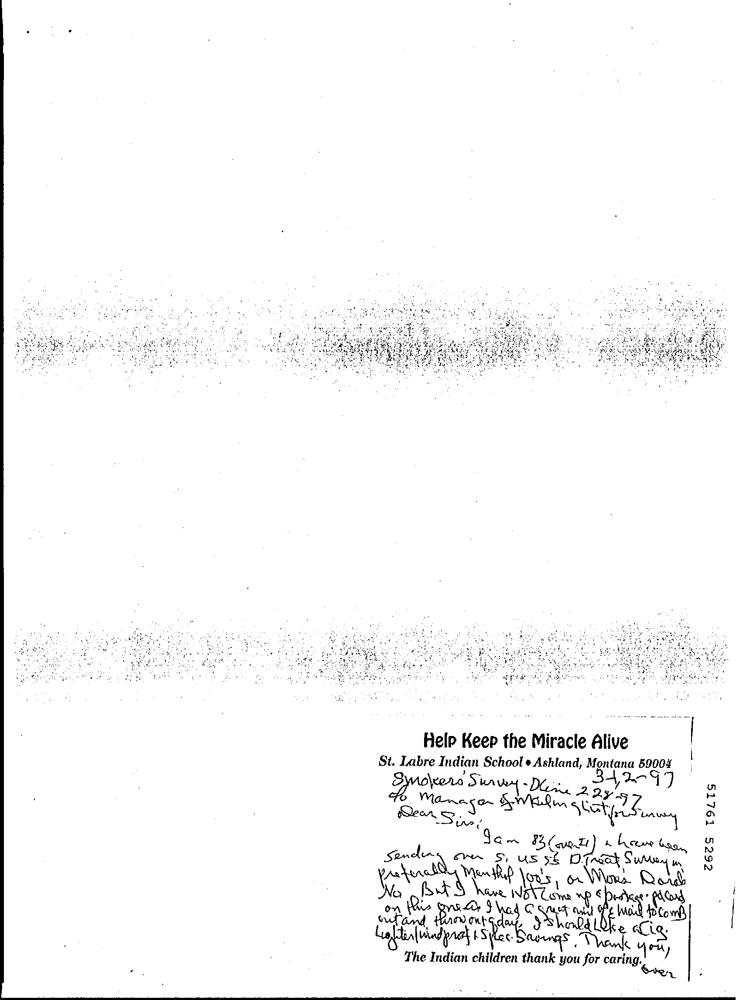 Help Keep the Miracle Alive
St. Labre Indian School • Ashland, Montana 59004
Smokers' Survey - 3-1,2-97
% Manager of Mailing List for Survey 2 28-97
Dear Sirs:
I am 83 (over 21) & have been
sending over 5, us Survey in
preferably Menthol 100's, or
No But I have Not Come up
on this I had a great and of mail to comb
out and throw out I should Like a Cig.
Lighter/windproof & Spec. Savings. Thank you,
The Indian children thank you for caring.
over
51761 5292